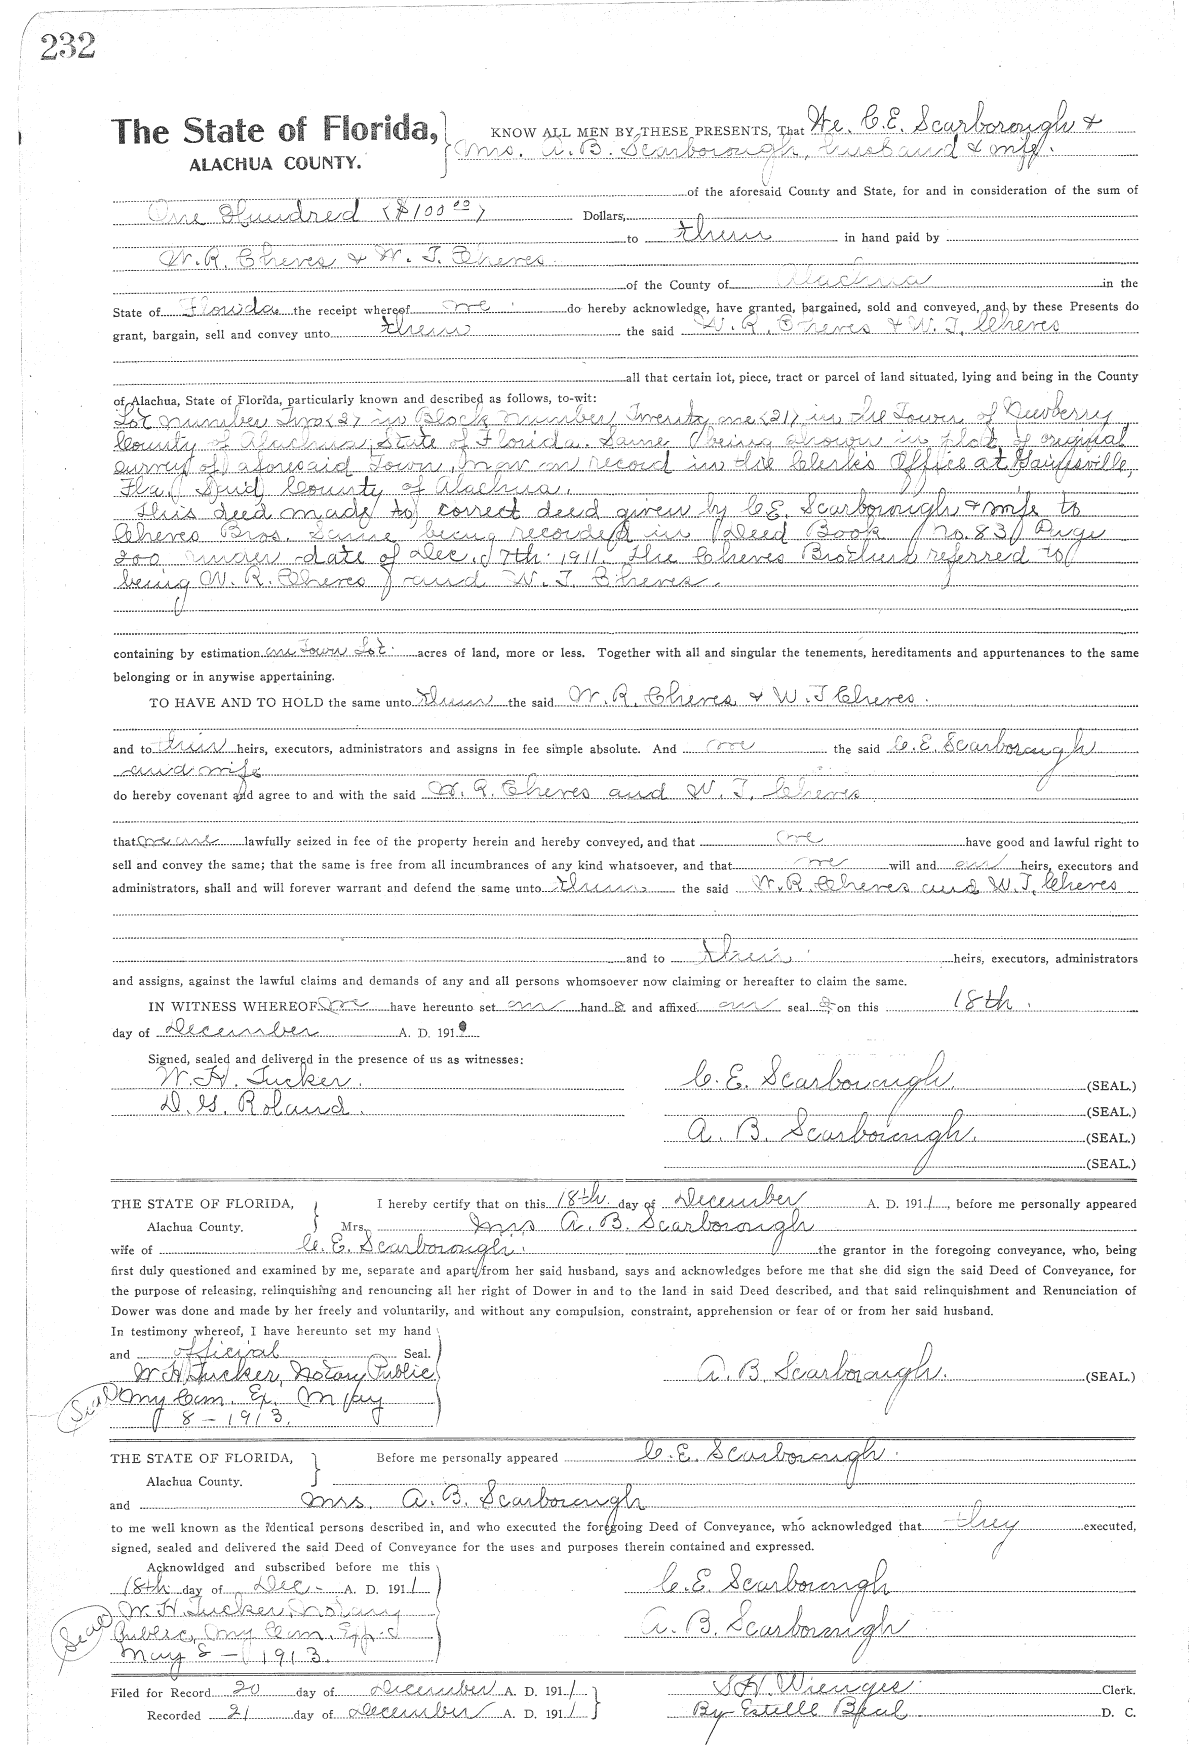 232
The State of Florida, KNOW ALL MEN BY THESE PRESENTS, That We. C.E. Scarborough &
ALACHUA COUNTY. Mrs. A. B. Scarborough, husband & wife.
of the aforesaid County and State, for and in consideration of the sum of
One Hundred ($100 00) Dollars,
to them in hand paid by
W. R. Cheves & W. T. Cheves
of the County of Alachua in the
State of Florida the receipt whereof we do hereby acknowledge, have granted, bargained, sold and conveyed, and by these Presents do
grant, bargain, sell and convey unto them the said W. R. Cheves & W. T. Cheves
all that certain lot, piece, tract or parcel of land situated, lying and being in the County
of Alachua, State of Florida, particularly known and described as follows, to-wit:
Lot number Two (2) in Block number Twenty one (21) in the Town of Newberry
County of Alachua, State of Florida. Same being shown in plat of original
survey of aforesaid Town, now on record in the Clerk's Office at Gainesville,
Fla. Said County of Alachua.
This deed made to correct deed given by C.E. Scarborough & wife to
Cheves Bros. Same being recorded in Deed Book No. 83 Page
200 under date of Dec. 7th 1911. The Cheves Brothers referred to
being W. R. Cheves and W. T. Cheves.
containing by estimation one Town Lot. acres of land, more or less. Together with all and singular the tenements, hereditaments and appurtenances to the same
belonging or in anywise appertaining.
TO HAVE AND TO HOLD the same unto them the said W. R. Cheves & W. T Cheves.
and to their heirs, executors, administrators and assigns in fee simple absolute. And we the said C. E. Scarborough
and wife
do hereby covenant and agree to and with the said W. R. Cheves and W. T. Cheves
that we are lawfully seized in fee of the property herein and hereby conveyed, and that we have good and lawful right to
sell and convey the same; that the same is free from all incumbrances of any kind whatsoever, and that we will and our heirs, executors and
administrators, shall and will forever warrant and defend the same unto them the said W. R. Cheves and W. T. Cheves
and to their heirs, executors, administrators
and assigns, against the lawful claims and demands of any and all persons whomsoever now claiming or hereafter to claim the same.
IN WITNESS WHEREOF we have hereunto set our hand s and affixed our seal s on this 18th.
day of December A. D. 191
Signed, sealed and delivered in the presence of us as witnesses:
W. H. Tucker. C. E. Scarborough (SEAL.)
D. G. Roland. (SEAL.)
A. B. Scarborough. (SEAL.)
(SEAL.)
THE STATE OF FLORIDA, I hereby certify that on this 18th. day of December A. D. 191 1, before me personally appeared
Alachua County. Mrs. Mrs A. B. Scarborough
wife of C. E. Scarborough. the grantor in the foregoing conveyance, who, being
first duly questioned and examined by me, separate and apart from her said husband, says and acknowledges before me that she did sign the said Deed of Conveyance, for
the purpose of releasing, relinquishing and renouncing all her right of Dower in and to the land in said Deed described, and that said relinquishment and Renunciation of
Dower was done and made by her freely and voluntarily, and without any compulsion, constraint, apprehension or fear of or from her said husband.
In testimony whereof, I have hereunto set my hand
and official Seal.
W. H. Tucker, Notary Public A. B. Scarborough. (SEAL.)
(Seal) My Com. Ex. May
8 - 1913.
THE STATE OF FLORIDA, Before me personally appeared C. E. Scarborough.
Alachua County.
and Mrs. A. B. Scarborough
to me well known as the identical persons described in, and who executed the foregoing Deed of Conveyance, who acknowledged that they executed,
signed, sealed and delivered the said Deed of Conveyance for the uses and purposes therein contained and expressed.
Acknowldged and subscribed before me this
18th day of Dec. A. D. 191 1 C. E. Scarborough
W. H. Tucker, Notary
(Seal) Public, My Com. Exp. A. B. Scarborough
May 8 - 1913.
Filed for Record 20 day of December A. D. 191 1 S H. Wienges Clerk.
Recorded 21 day of December A. D. 191 1 By Estelle Beal D. C.